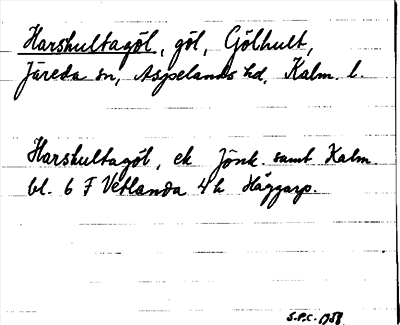 Harshultagöl, göl, Gölhult,
Järeda sn, Aspelands hd, Kalm. l.
Harshultagöl, ek Jönk. samt Kalm.
bl. 6 F Vetlanda 4 h Häggarp.
S.P.C. 1958